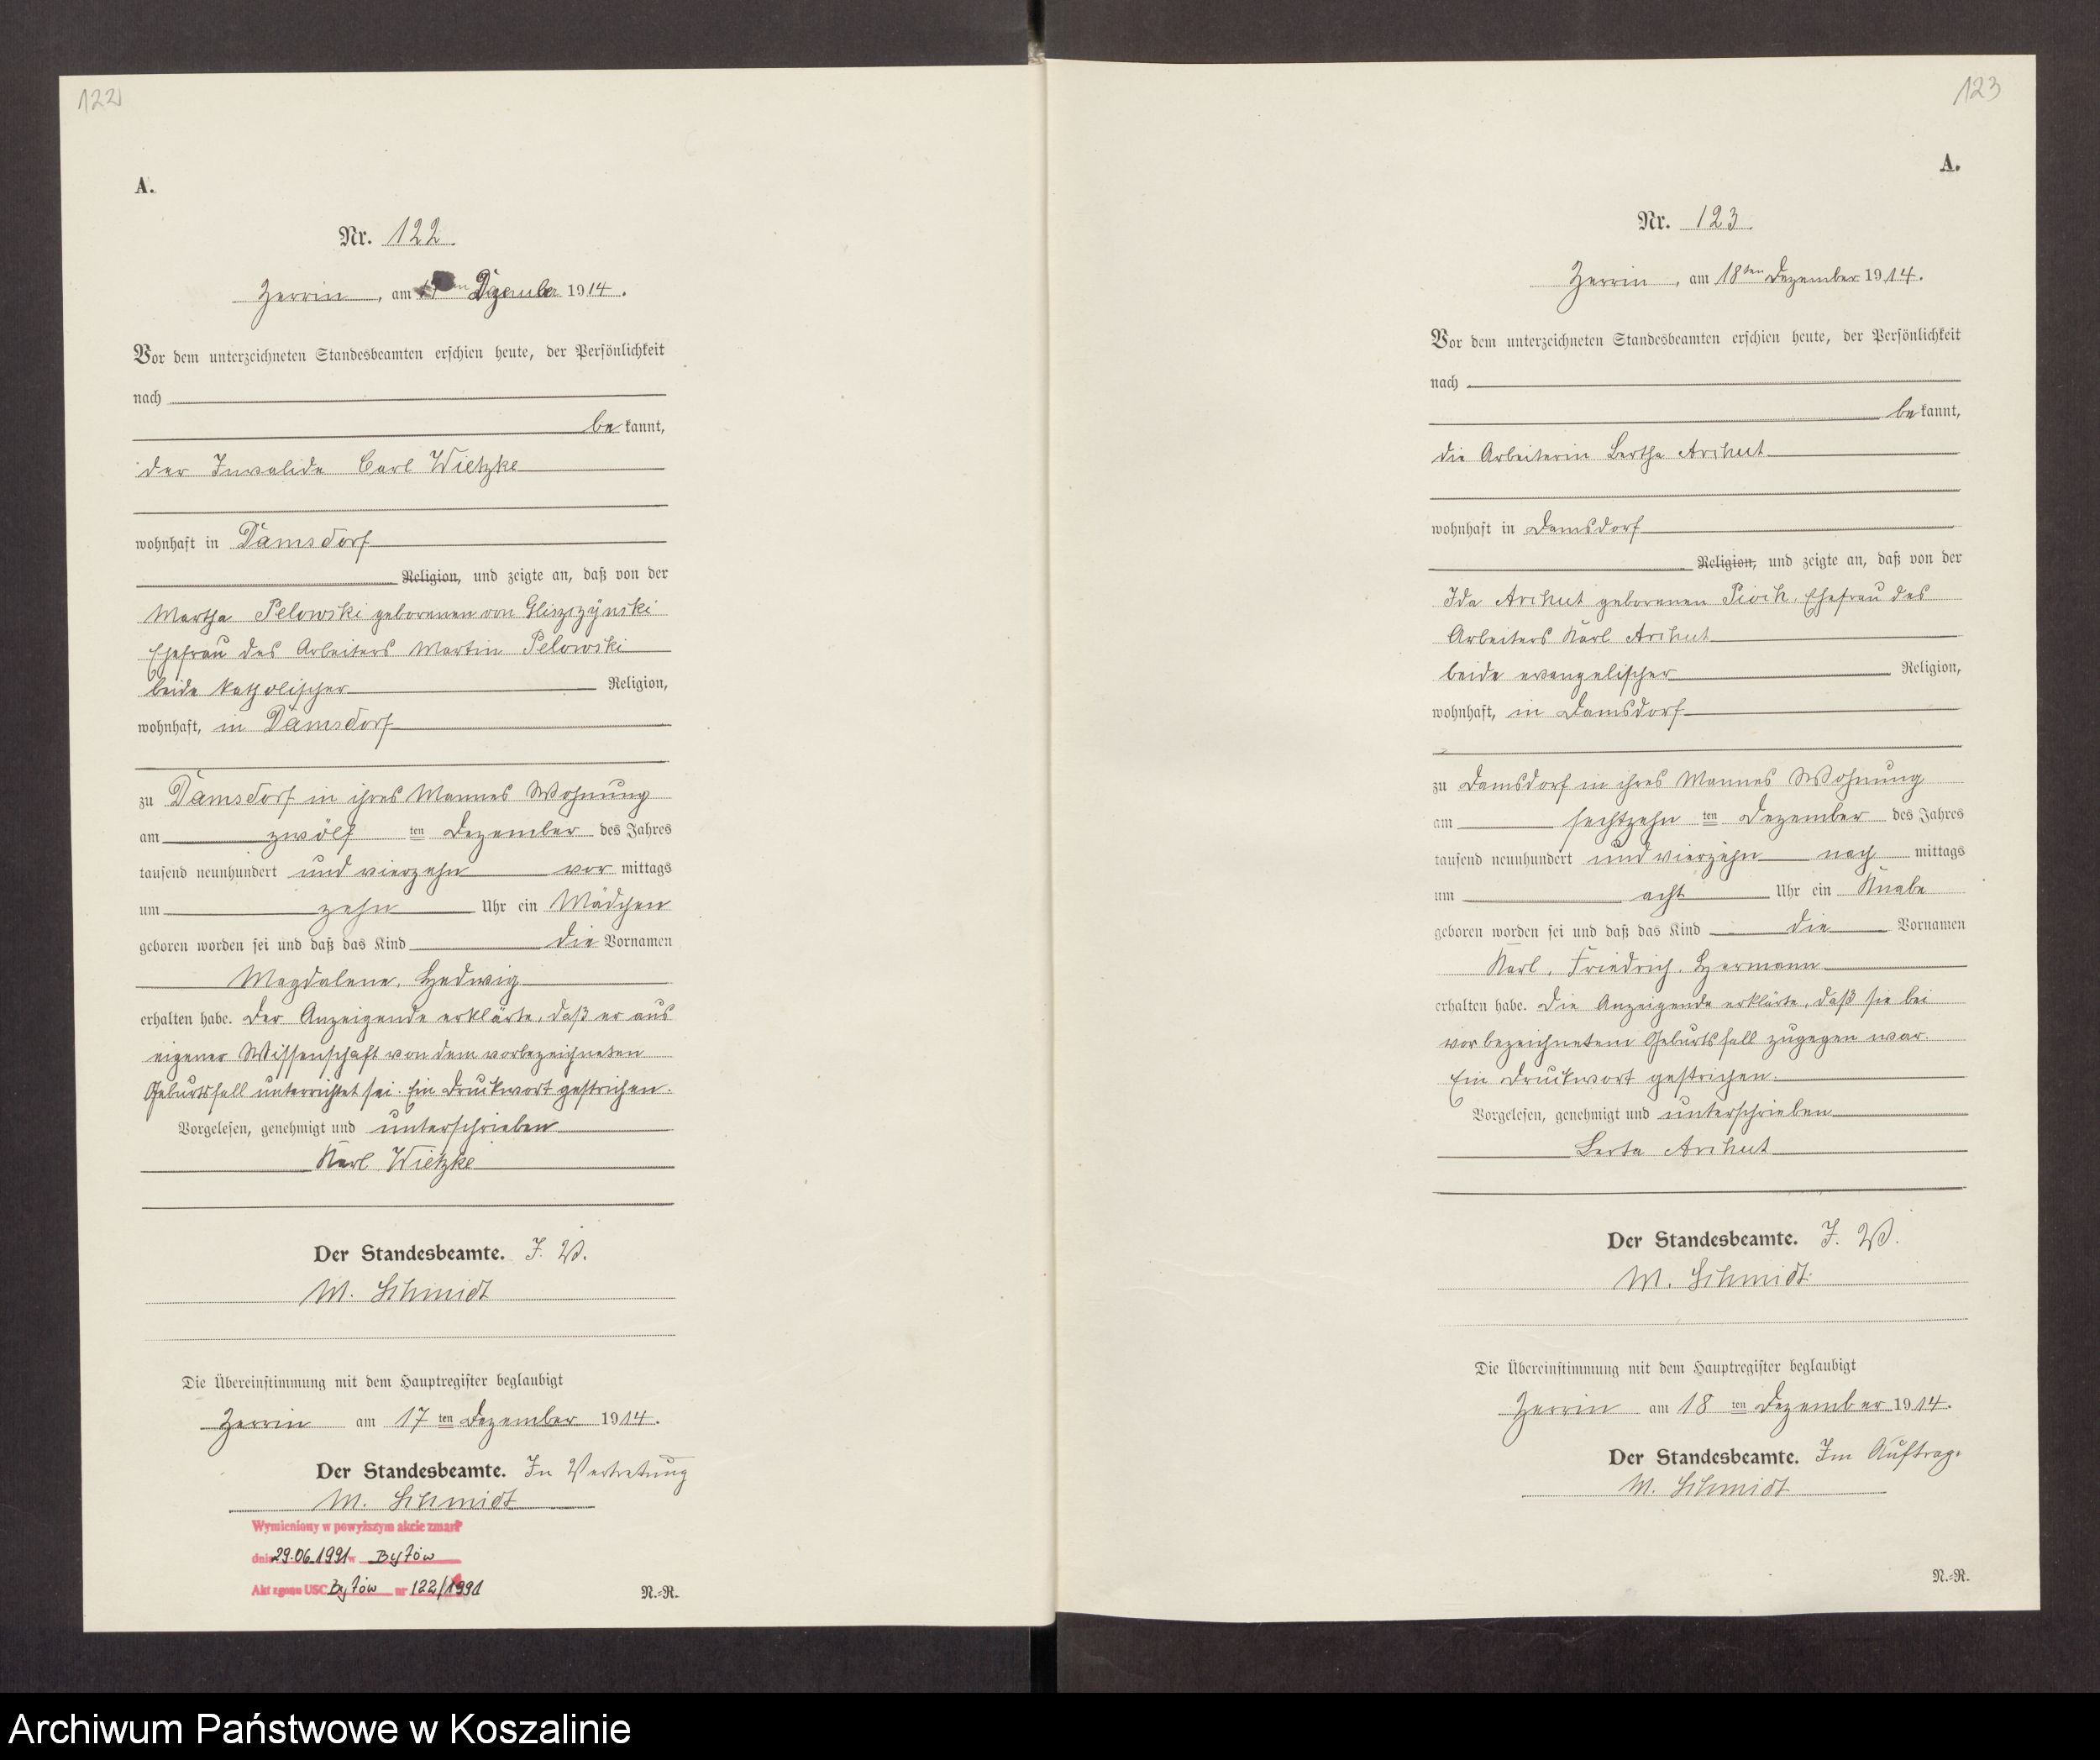 122
A.
Nr. 122.
Zerrin, am 17ten Dezember 1914.
Vor dem unterzeichneten Standesbeamten erschien heute, der Persönlichkeit
nach
bekannt,
der Invalide Carl Wietzke
wohnhaft in Damsdorf
Religion, und zeigte an, daß von der
Martha Pelowski geborenen von Gliszczynski
Ehefrau des Arbeiters Martin Pelowski
beide katholischer Religion,
wohnhaft, in Damsdorf
zu Damsdorf in ihres Mannes Wohnung
am zwölf ten Dezember des Jahres
tausend neunhundert und vierzehn vor mittags
um zehn Uhr ein Mädchen
geboren worden sei und daß das Kind die Vornamen
Magdalene, Hedwig
erhalten habe. Der Anzeigende erklärte, daß er aus
eigener Wissenschaft von dem vorbezeichneten
Geburtsfall unterrichtet sei. Ein Druckwort gestrichen.
Vorgelesen, genehmigt und unterschrieben
Karl Wietzke
Der Standesbeamte. J. V.
M. Schmidt
Die Übereinstimmung mit dem Hauptregister beglaubigt
Zerrin am 17 ten Dezember 1914.
Der Standesbeamte. In Vertretung
M. Schmidt
Wymieniony w powyższym akcie zmarł
dnia 29.06.1991 w Bytów
Akt zgonu USC Bytów nr 122/1991
N.=R.
123
A.
Nr. 123.
Zerrin, am 18ten Dezember 1914.
Vor dem unterzeichneten Standesbeamten erschien heute, der Persönlichkeit
nach
bekannt,
die Arbeiterin Bertha Arihut
wohnhaft in Damsdorf
Religion, und zeigte an, daß von der
Ida Arihut geborenen Pioch, Ehefrau des
Arbeiters Karl Arihut
beide evangelischer Religion,
wohnhaft, in Damsdorf
zu Damsdorf in ihres Mannes Wohnung
am sechtzehn ten Dezember des Jahres
tausend neunhundert und vierzehn nach mittags
um acht Uhr ein Knabe
geboren worden sei und daß das Kind die Vornamen
Karl, Friedrich, Hermann
erhalten habe. Die Anzeigende erklärte, daß sie bei
vorbezeichnetem Geburtsfall zugegen war.
Ein Druckwort gestrichen.
Vorgelesen, genehmigt und unterschrieben
Berta Arihut
Der Standesbeamte. J. V.
M. Schmidt
Die Übereinstimmung mit dem Hauptregister beglaubigt
Zerrin am 18 ten Dezember 1914.
Der Standesbeamte. Im Auftrag.
M. Schmidt
N.=R.
Archiwum Państwowe w Koszalinie